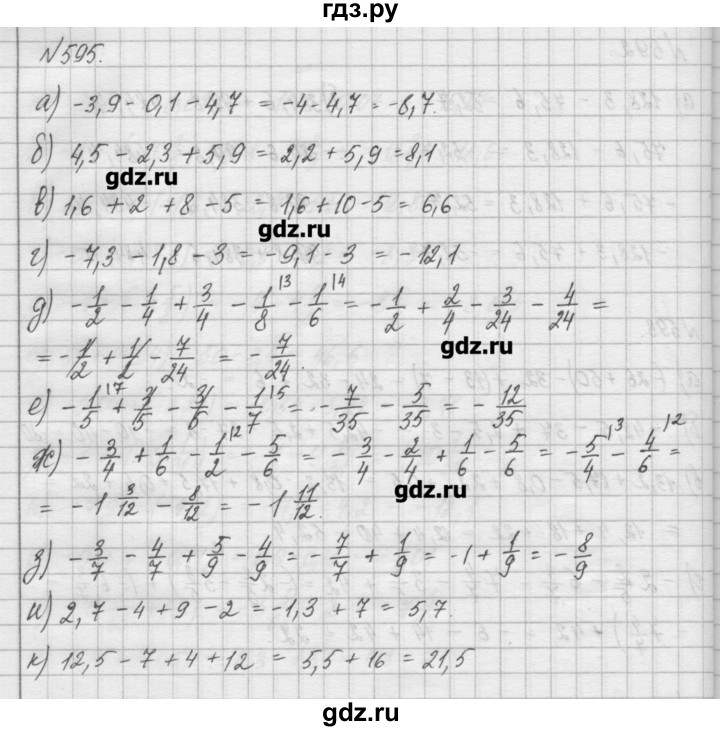 гдз.ру
№595.
а) -3,9 - 0,1 - 4,7 = -4 - 4,7 = -8,7.
б) 4,5 - 2,3 + 5,9 = 2,2 + 5,9 = 8,1
gdz.ru
в) 1,6 + 2 + 8 - 5 = 1,6 + 10 - 5 = 6,6
gdz.ru
г) -7,3 - 1,8 - 3 = -9,1 - 3 = -12,1
д) -1/2 - 1/4 + 3/4 - 1/8 |3 - 1/6 |4 = -1/2 + 2/4 - 3/24 - 4/24 =
gdz.ru
= -1/2 + 1/2 - 7/24 = -7/24.
е) -1/5 |7 + 3/5 - 3/5 - 1/7 |5 = -7/35 - 5/35 = -12/35
ж) -3/4 + 1/6 - 1/2 |2 - 5/6 = -3/4 - 2/4 + 1/6 - 5/6 = -5/4 |3 - 4/6 |2 =
gdz.ru
= -1 3/12 - 8/12 = -1 11/12.
з) -3/7 - 4/7 + 5/9 - 4/9 = -7/7 + 1/9 = -1 + 1/9 = -8/9
и) 2,7 - 4 + 9 - 2 = -1,3 + 7 = 5,7.
к) 12,5 - 7 + 4 + 12 = 5,5 + 16 = 21,5
gdz.ru